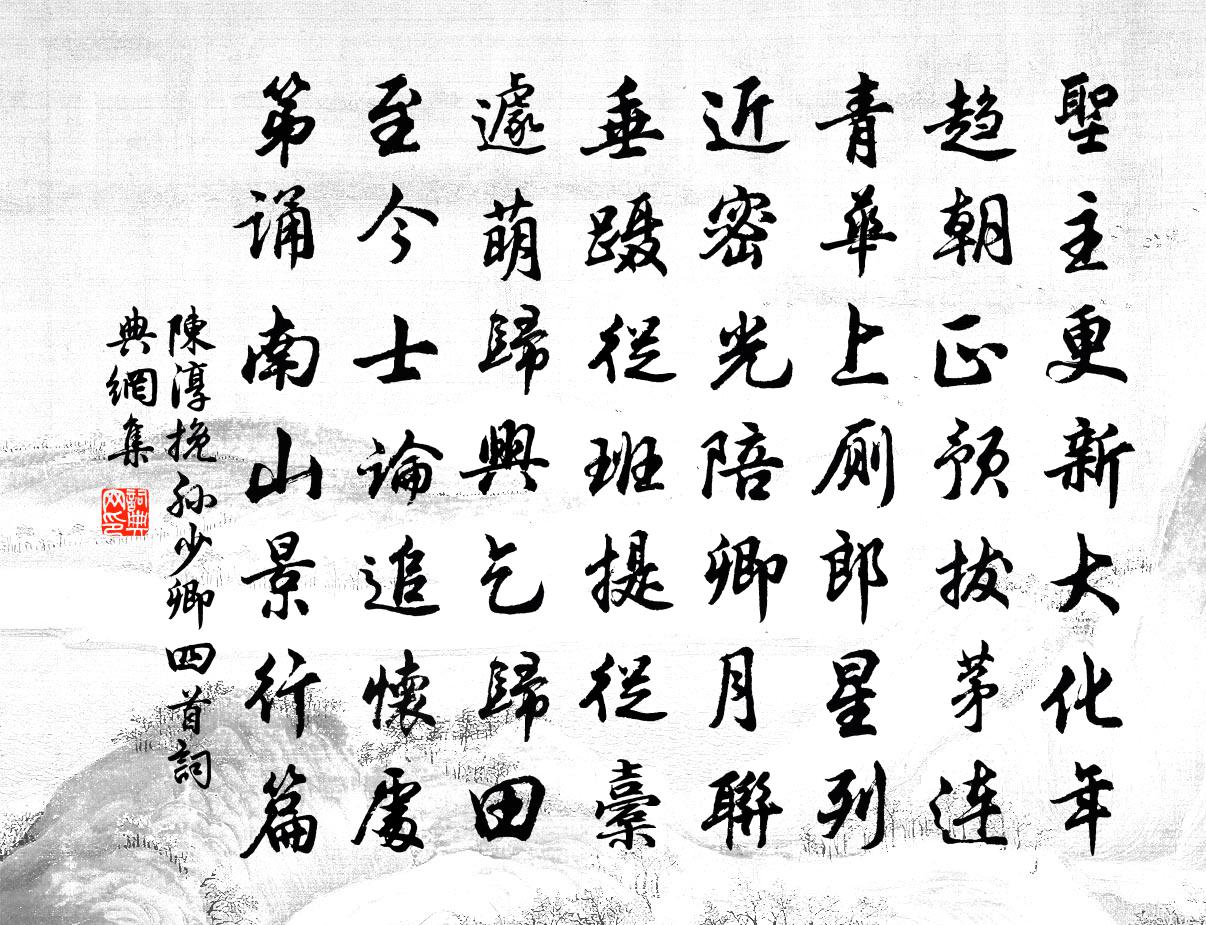 聖主更新大化年
趋朝正预拔茅連
青華上厠郎星列
近密光陪卿月聯
垂蹑從班提從橐
遽萌歸興乞歸田
至今士論追懷處
第诵南山景行篇
陳淳挽孙少卿四首詞
典網集
詞典網印